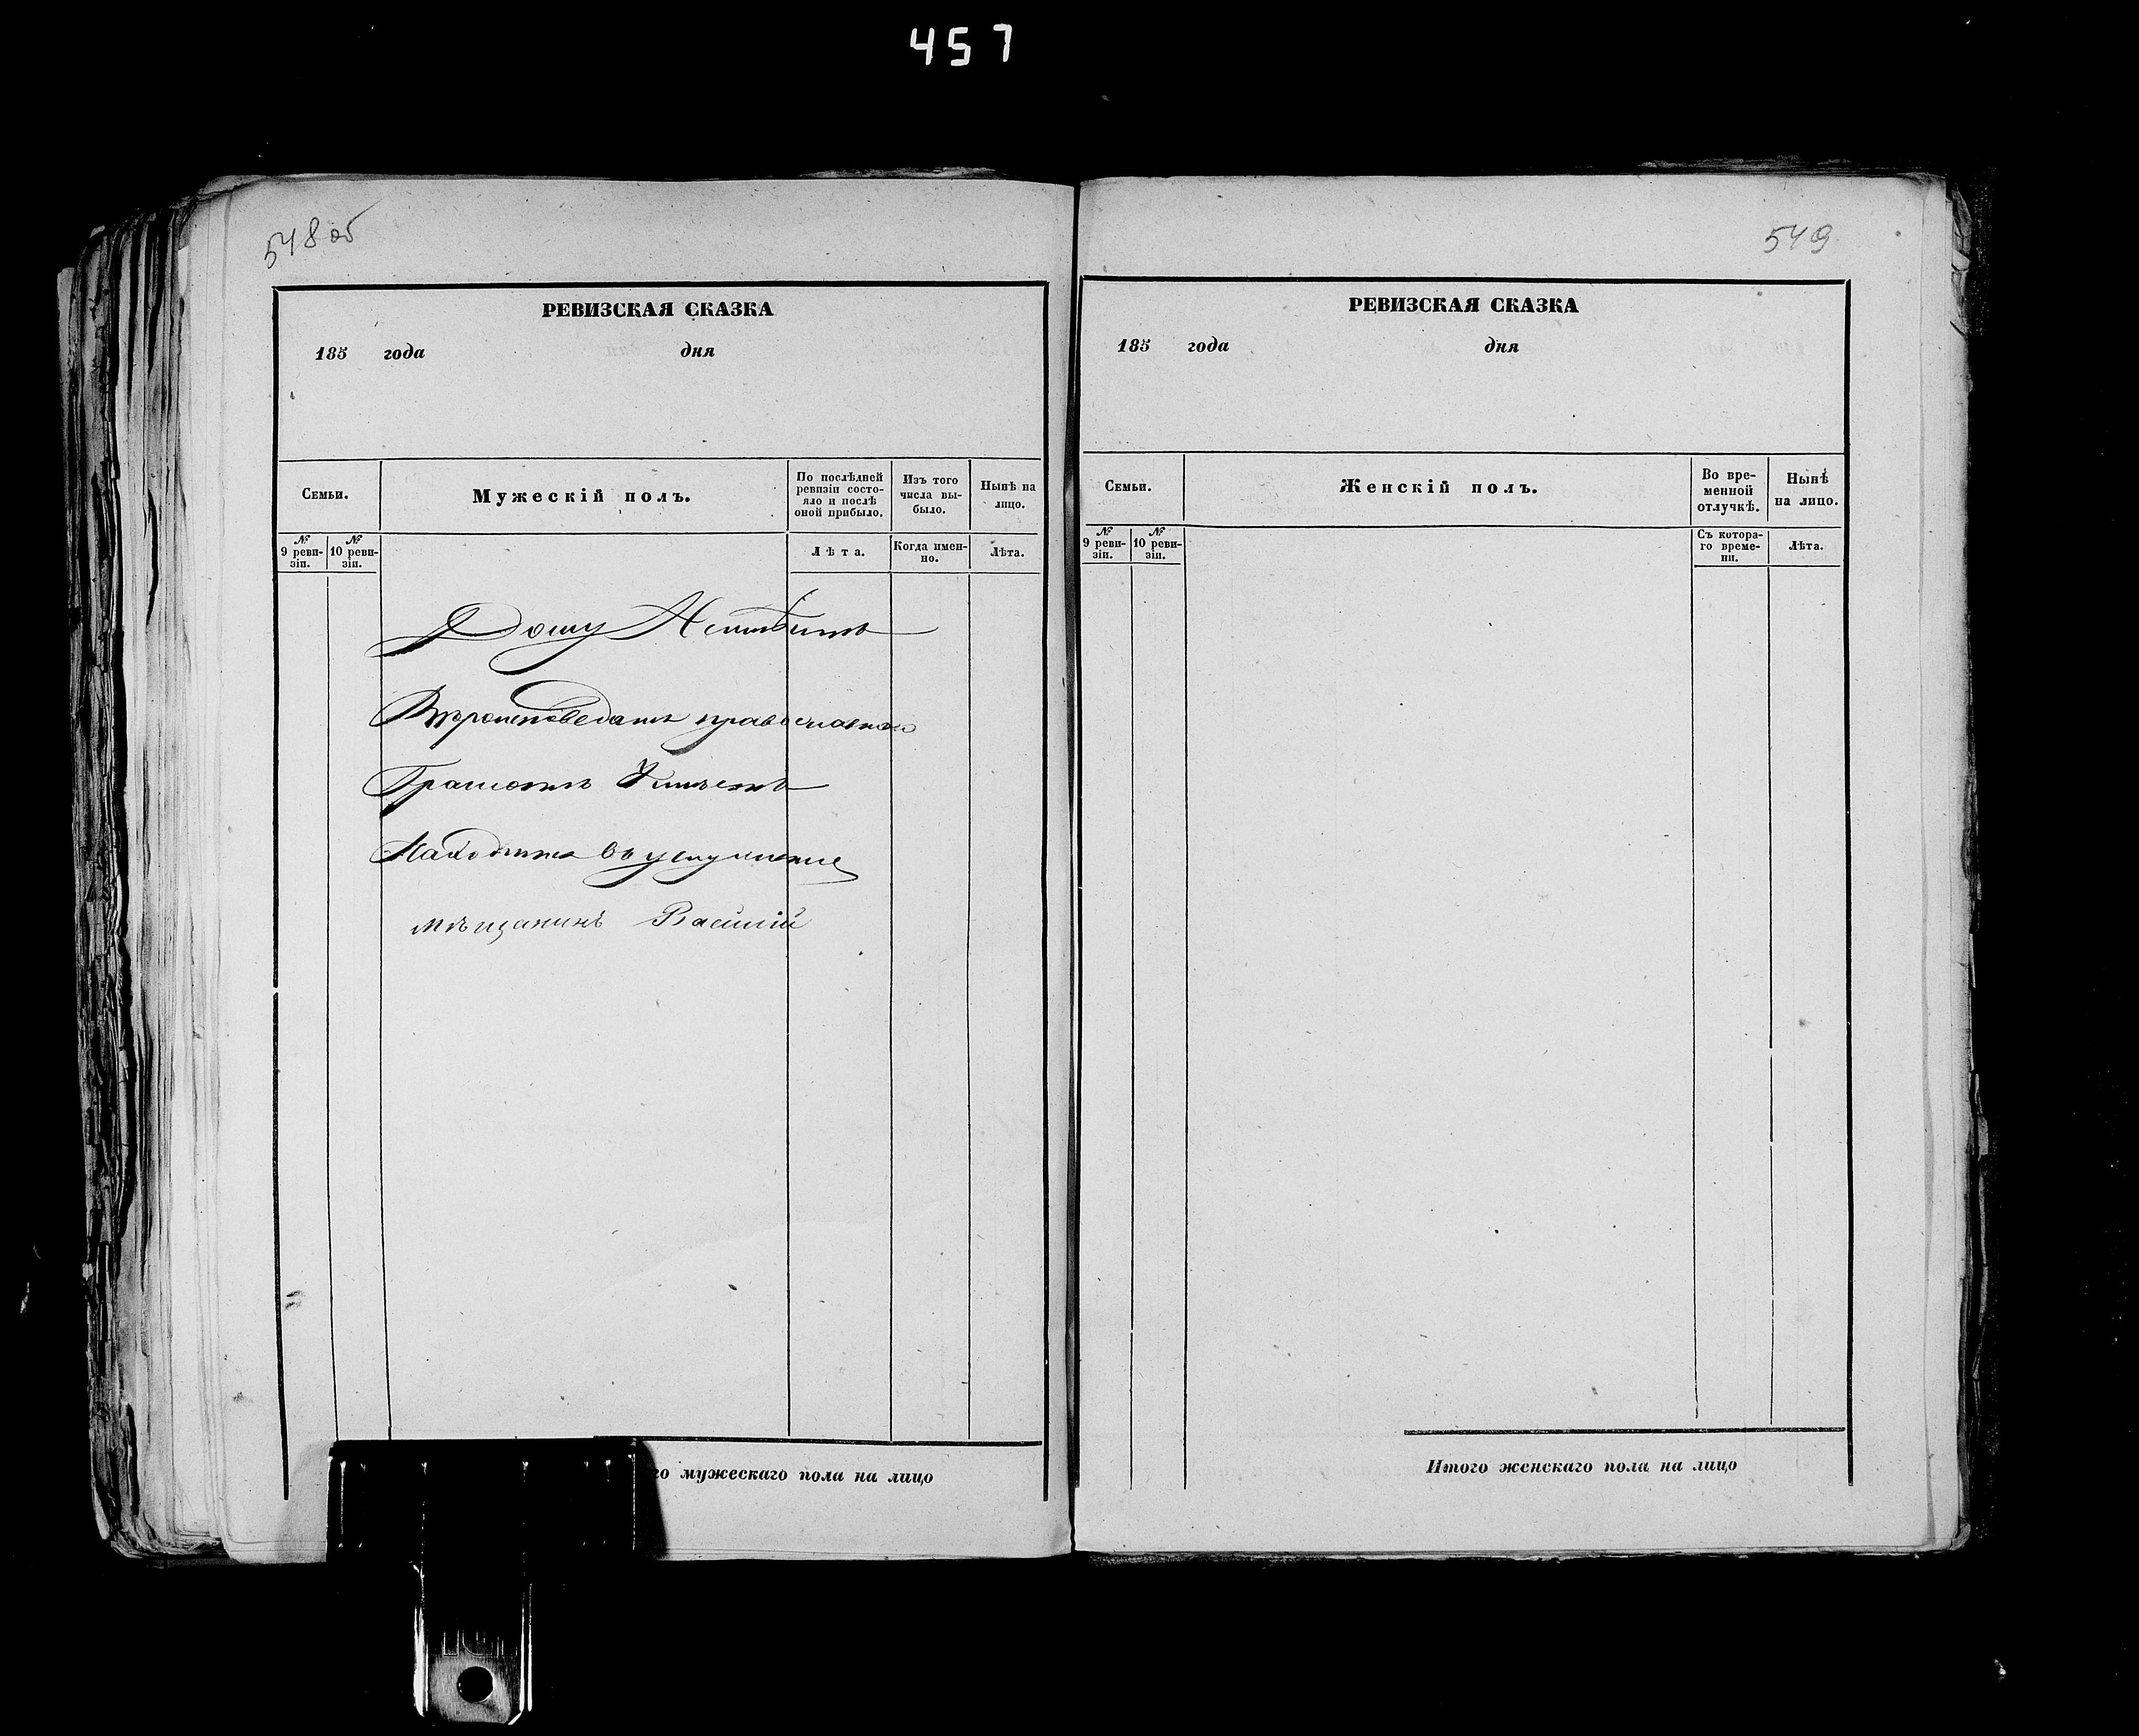 457
548об
РЕВИЗСКАЯ СКАЗКА
185 года дня
Семьи.
Мужескій полъ.
По послѣдней ревизіи состояло и послѣ оной прибыло.
Изъ того числа выбыло.
Нынѣ на лицо.
№ 9 ревизіи.
№ 10 ревизіи.
Лѣта.
Когда именно.
Лѣта.
Дому Неимѣитъ
Вѣроисповеданія православнаго
Грамотѣ Умѣетъ
Находится въ услуженіе
мѣщанинъ Василій
го мужескаго пола на лицо
549
РЕВИЗСКАЯ СКАЗКА
185 года дня
Семьи.
Женскій полъ.
Во временной отлучкѣ.
Нынѣ на лицо.
№ 9 ревизіи.
№ 10 ревизіи.
Съ котораго времени.
Лѣта.
Итого женскаго пола на лицо